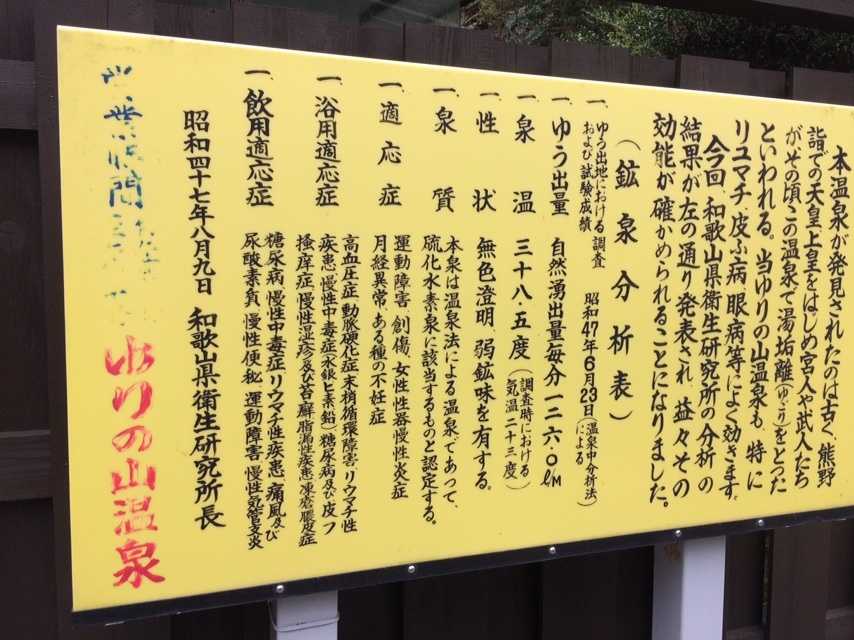 本温泉が発見されたのは古く、熊野
詣での天皇上皇をはじめ宮人や武人たち
がその頃この温泉で湯垢離(ゆごり)をとった
といわれる。当ゆりの山温泉も、特に
リユマチ、皮ふ病、眼病等によく効きます。
今回、和歌山県衛生研究所の分析の
結果が左の通り発表され、益々その
効能が確かめられることになりました。
(鉱泉分析表)
一、ゆう出地における調査
および試験成績 昭和47年6月23日(温泉中分析法)による
一、ゆう出量 自然湧出量毎分一二六・〇ℓM
一、泉温 三十八・五度(調査時における
気温二十三度)
一、性状 無色澄明、弱鉱味を有する。
一、泉質 本泉は温泉法による温泉であって、
硫化水素泉に該当するものと認定する。
一、適応症 運動障害、創傷、女性性器慢性炎症
月経異常、ある種の不妊症
一、浴用適応症 高血圧症、動脈硬化症、末梢循環障害、リウマチ性
疾患、慢性中毒症(水銀、ヒ素、鉛)糖尿病及び皮フ
掻痒症、慢性湿疹及び苔癬、脂漏性疾患、凍瘡、膿皮症
一、飲用適応症 糖尿病、慢性中毒症、リウマチ性疾患、痛風及び
尿酸素質、慢性便秘、運動障害、慢性気管支炎
昭和四十七年八月九日 和歌山県衛生研究所長
営業時間
ゆりの山温泉